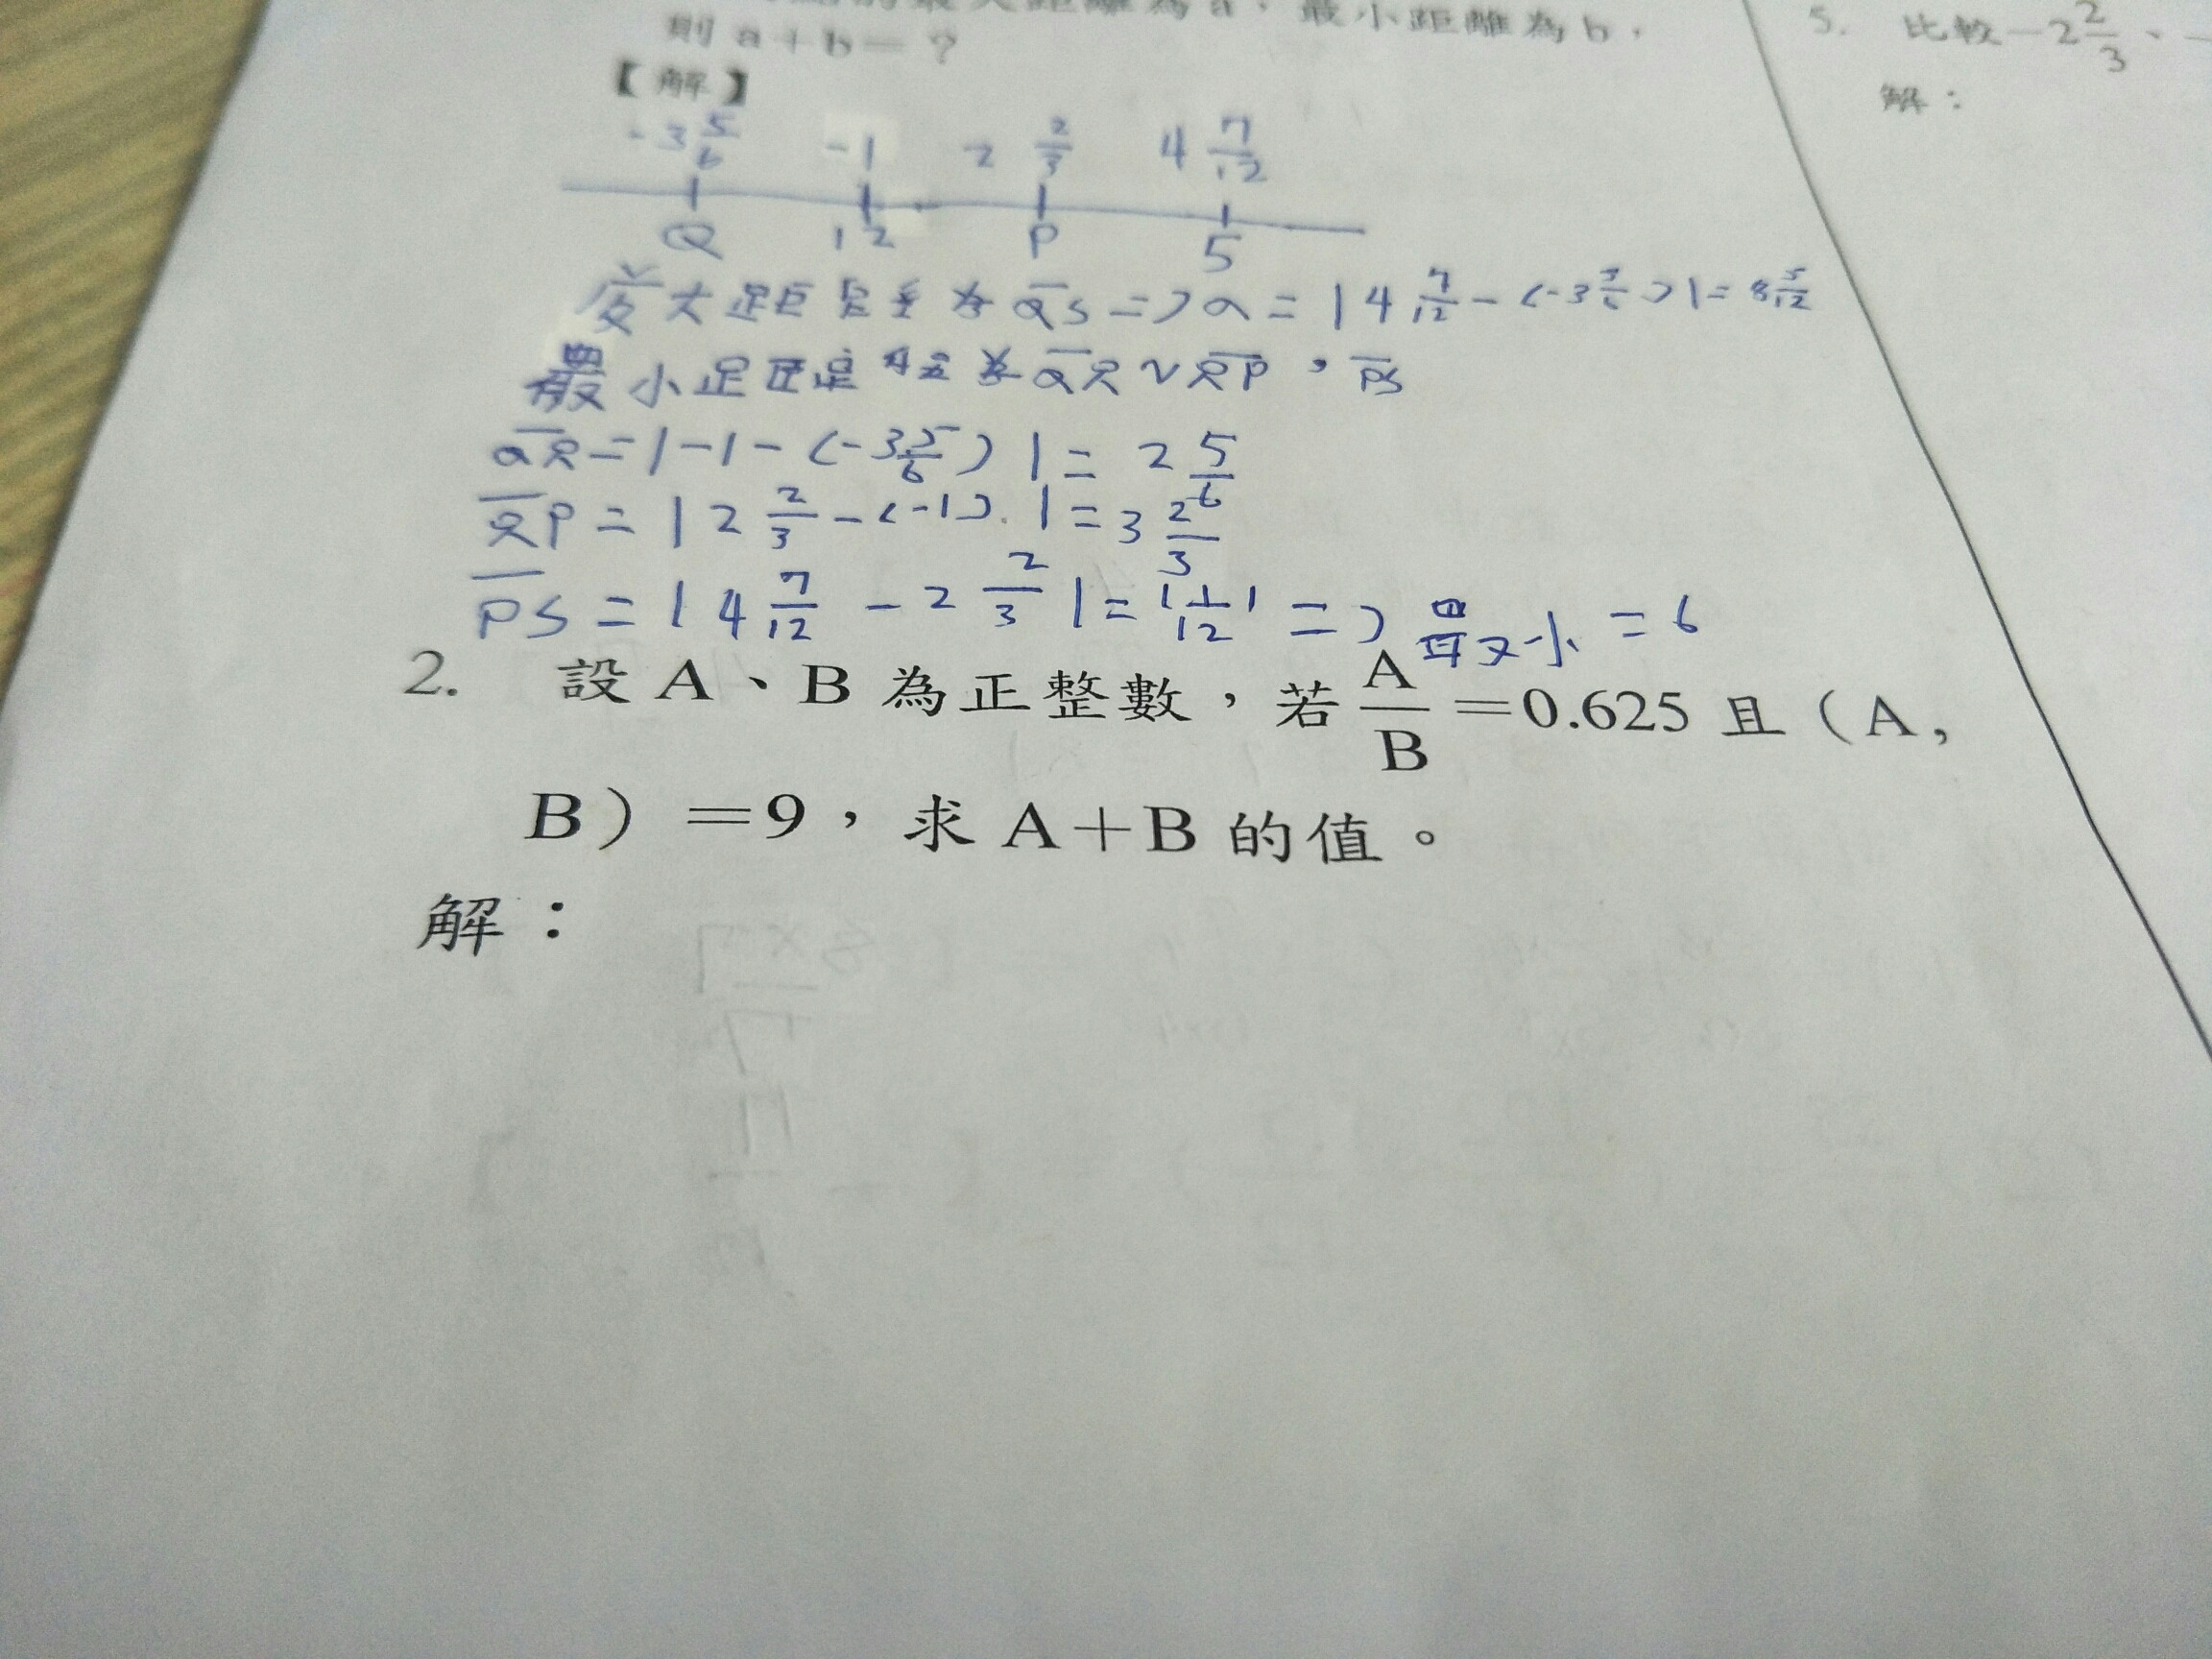 最大距離為a，最小距離為b，
則a+b=?
【解】
-3 5/6 -1 2 2/3 4 7/12
Q R P S
最大距離為 QS => a = |4 7/12 - (-3 5/6)| = 8 5/12
最小距離為 QR、RP，PS
QR = |-1-(-3 5/6)| = 2 5/6
RP = |2 2/3 - (-1)| = 3 2/3
PS = |4 7/12 - 2 2/3| = 1 11/12 => 最小 = b
2. 設 A、B 為正整數，若 A/B =0.625 且（A,
B）=9，求 A+B 的值。
解：
5. 比較-2 2/3、-
解：